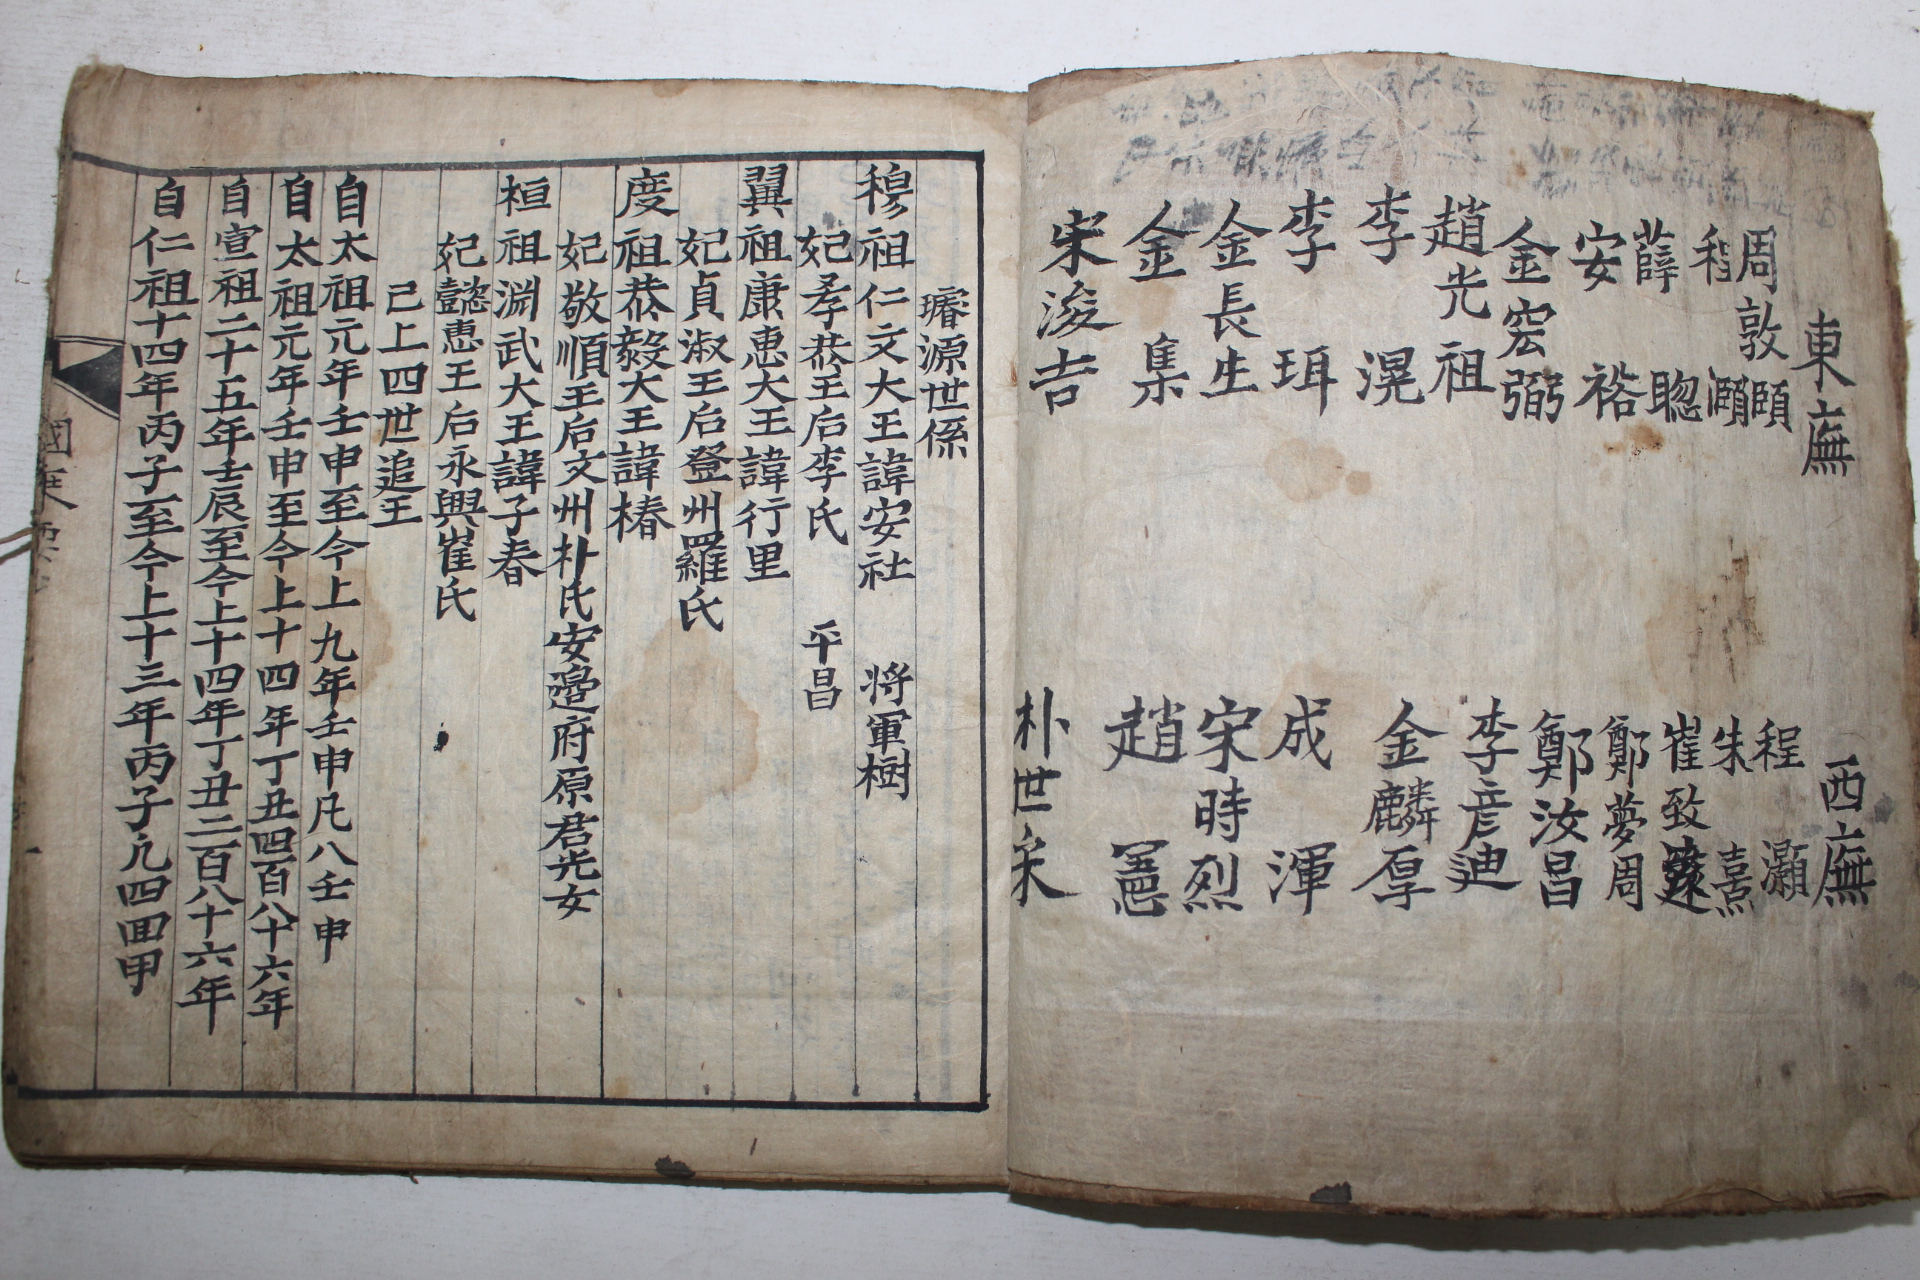 東廡
周敦頤
程顥
薛聰
安裕
金宏弼
趙光祖
李滉
李珥
金長生
金集
宋浚吉
西廡
程灝
朱熹
崔致遠
鄭夢周
鄭汝昌
李彦迪
金麟厚
成渾
宋時烈
趙憲
朴世采
璿源世係
穆祖仁文大王諱安社 将軍樹
妃孝恭王后李氏 平昌
翼祖康惠大王諱行里
妃貞淑王后登州羅氏
度祖恭毅大王諱椿
妃敬順王后文州朴氏安邊府原君光女
桓祖淵武大王諱子春
妃懿惠王后永興崔氏
已上四世追王
自太祖元年壬申至今上九年壬申凡八壬申
自太祖元年壬申至今上十四年丁丑四百八十六年
自宣祖二十五年壬辰至今上十四年丁丑二百八十六年
自仁祖十四年丙子至今上十三年丙子凡四回甲